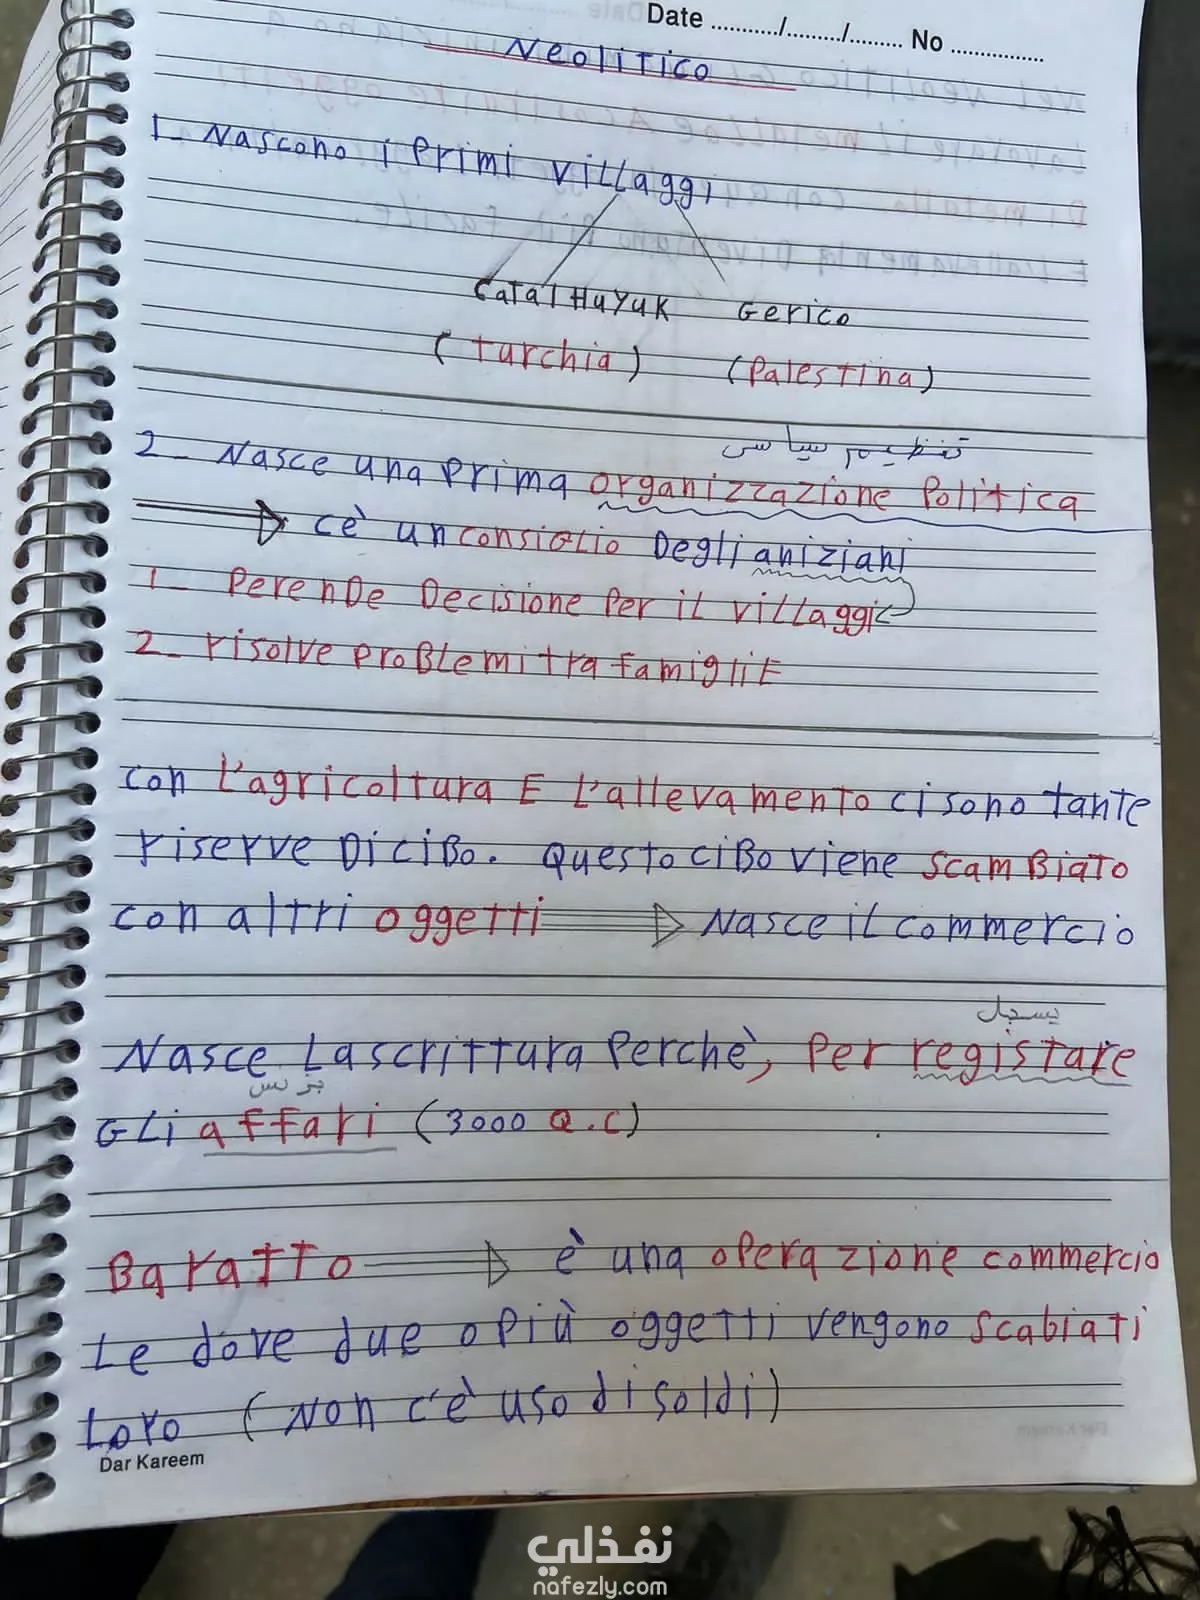 Date ............/........./......... No ...............
Neolitico
1- Nascono i Primi villaggi
Catal Huyuk Gerico
(turchia) (Palestina)
تنظيم سياسى
2- Nasce una Prima organizzazione Politica
cè un consiglio Degli aniziani
1- PerenDe Decisione Per il villaggio
2- risolve problemi tra famiglie
con l'agricoltura E l'allevamento ci sono tante
riserve Di ciBo. Questo ciBo viene scamBiato
con altri oggetti Nasce il commercio
يسجل
Nasce La scrittura Perchè, Per registare
بزنس
Gli affari (3000 a.c)
Baratto è una operazione commercio
Le dove due o più oggetti vengono scabiati
Loro (Non c'è uso di soldi)
Dar Kareem
نفذلي
nafezly.com